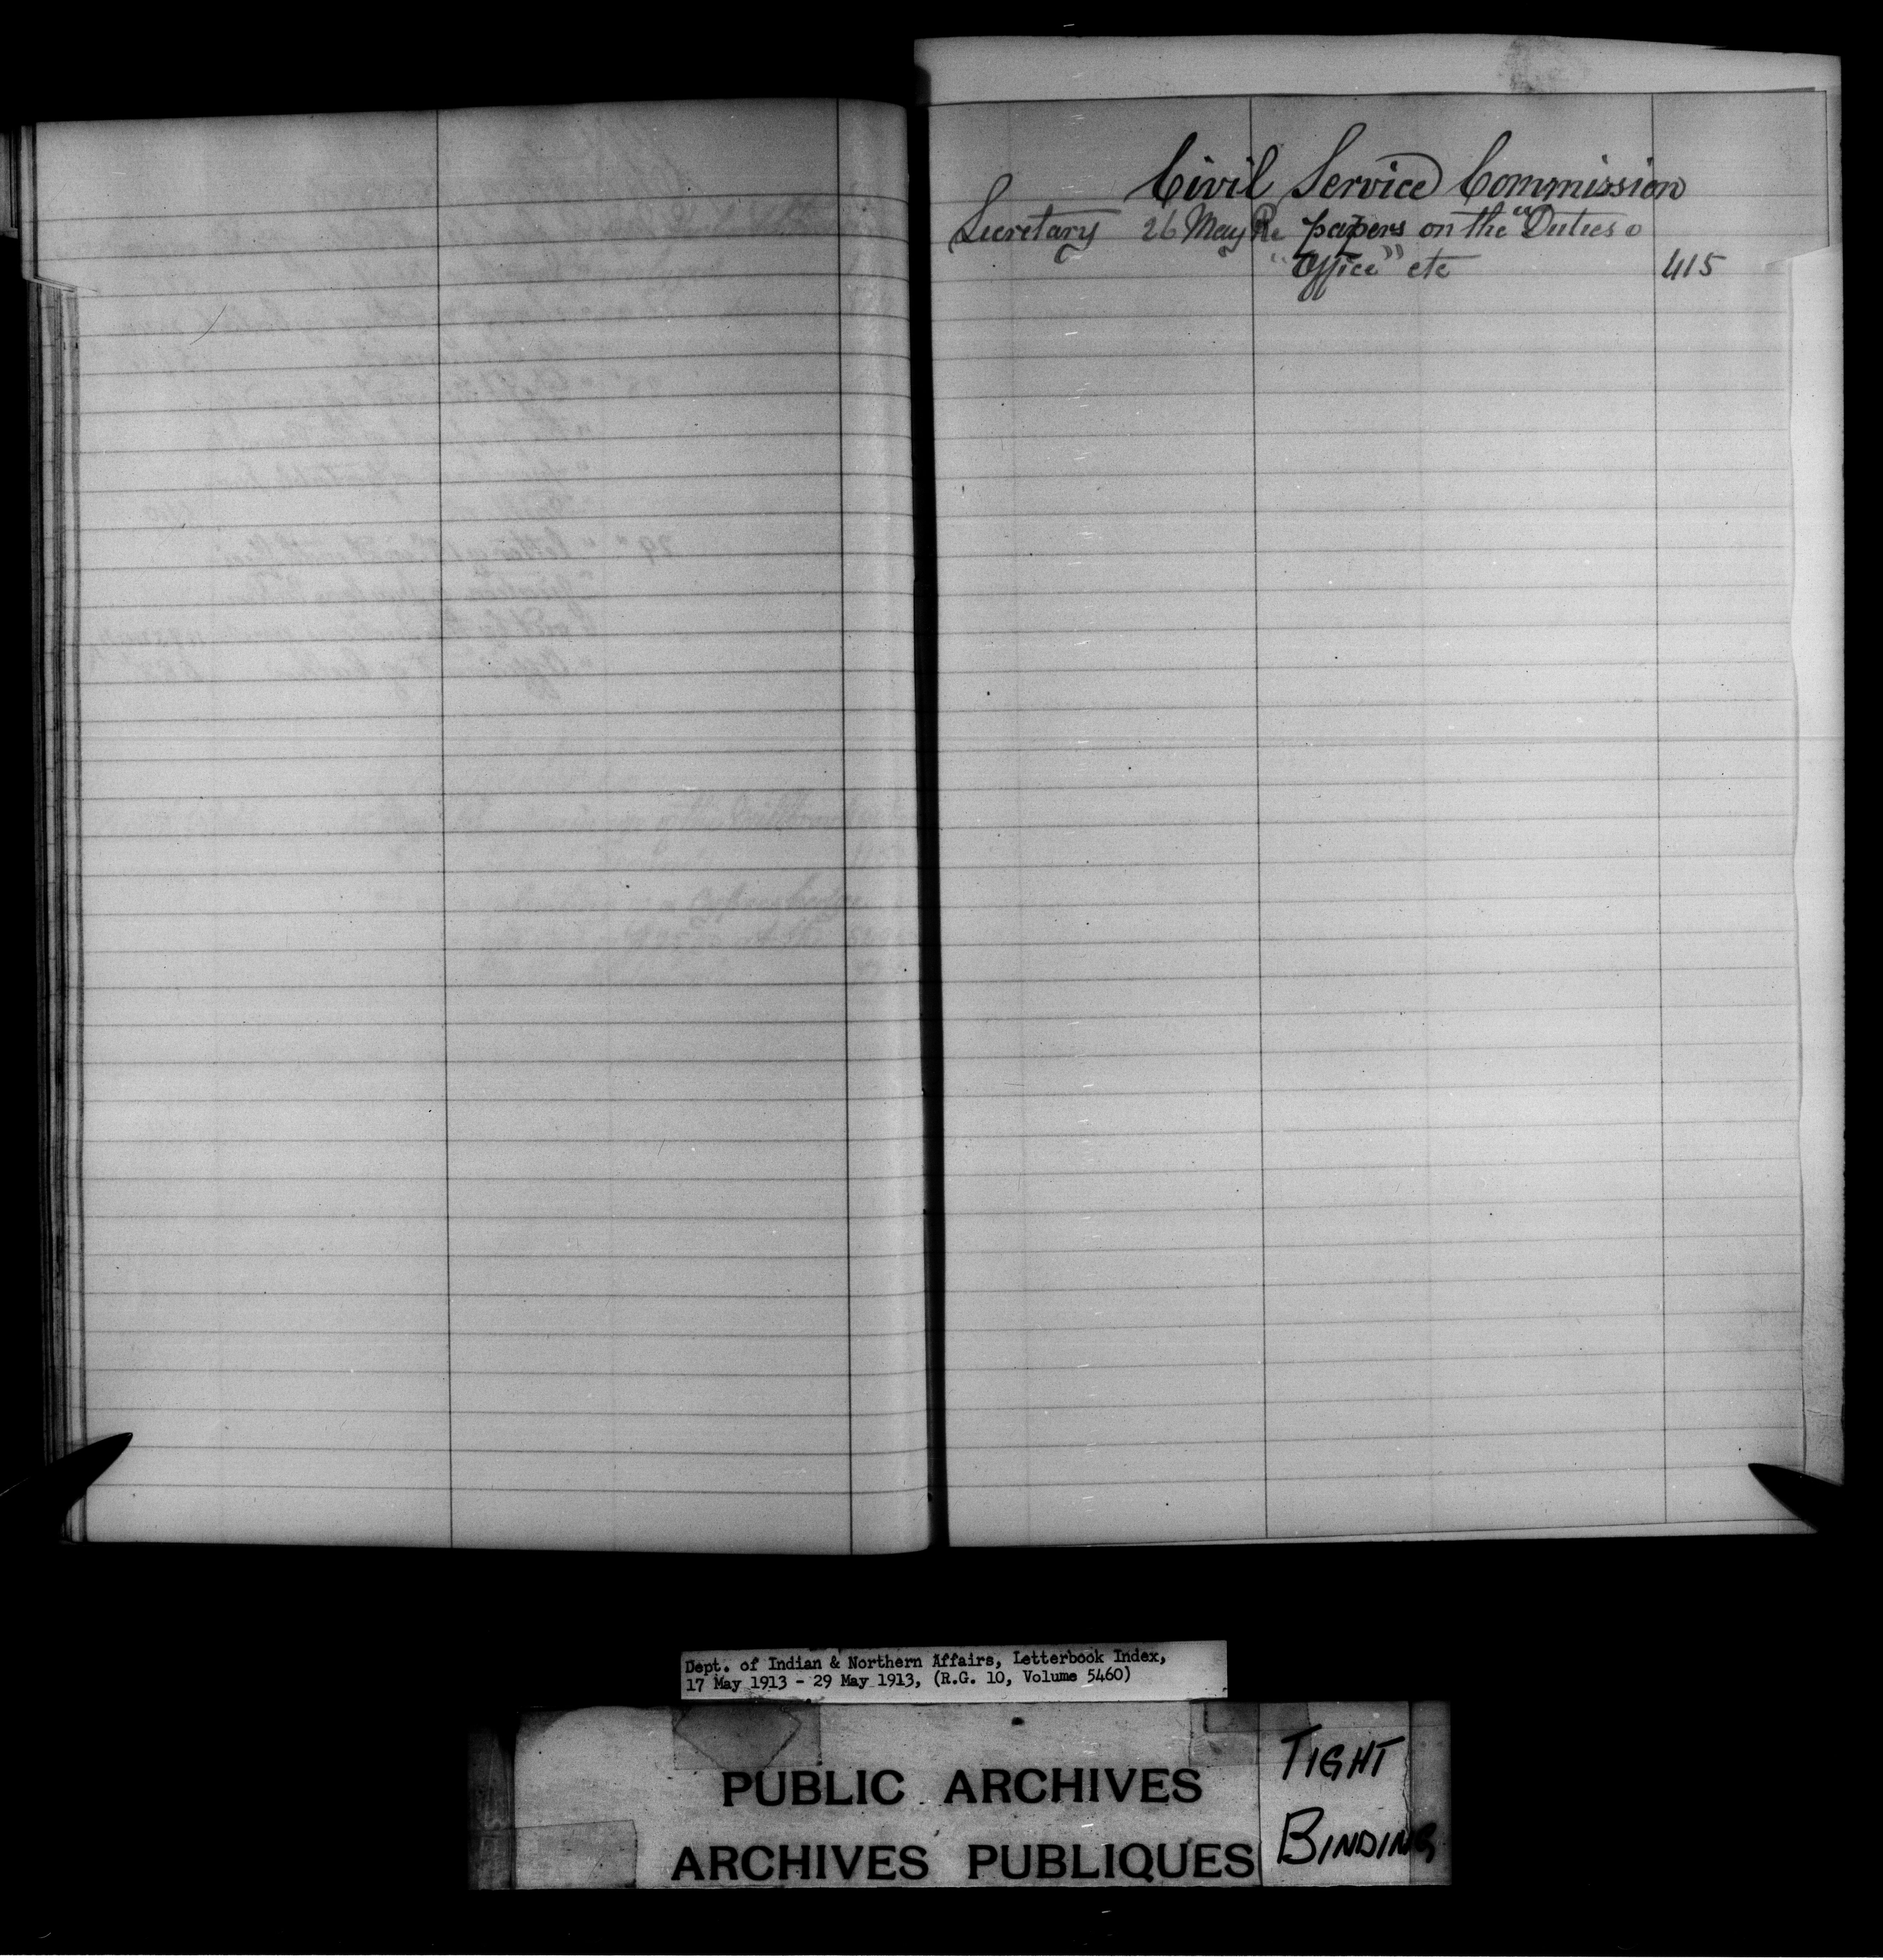 Civil Service Commission
Secretary 26 May Re papers on the "Duties o
"Office" etc 415
Dept. of Indian & Northern Affairs, Letterbook Index,
17 May 1913 - 29 May 1913, (R.G. 10, Volume 5460)
PUBLIC ARCHIVES
ARCHIVES PUBLIQUES
TIGHT
BINDING